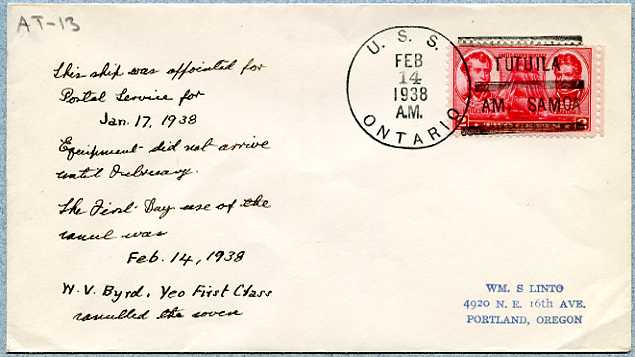 AT-13
This ship was appointed for
Postal Service for
Jan. 17, 1938
Equipment did not arrive
until February.
The First Day use of the
cancel was
Feb. 14, 1938
W. V. Byrd, Yeo First Class
cancelled the cover
U. S. S.
FEB
14
1938
A.M.
ONTARIO
TUTUILA
AM SAMOA
WM. S LINTO
4920 N. E. 16th AVE.
PORTLAND, OREGON